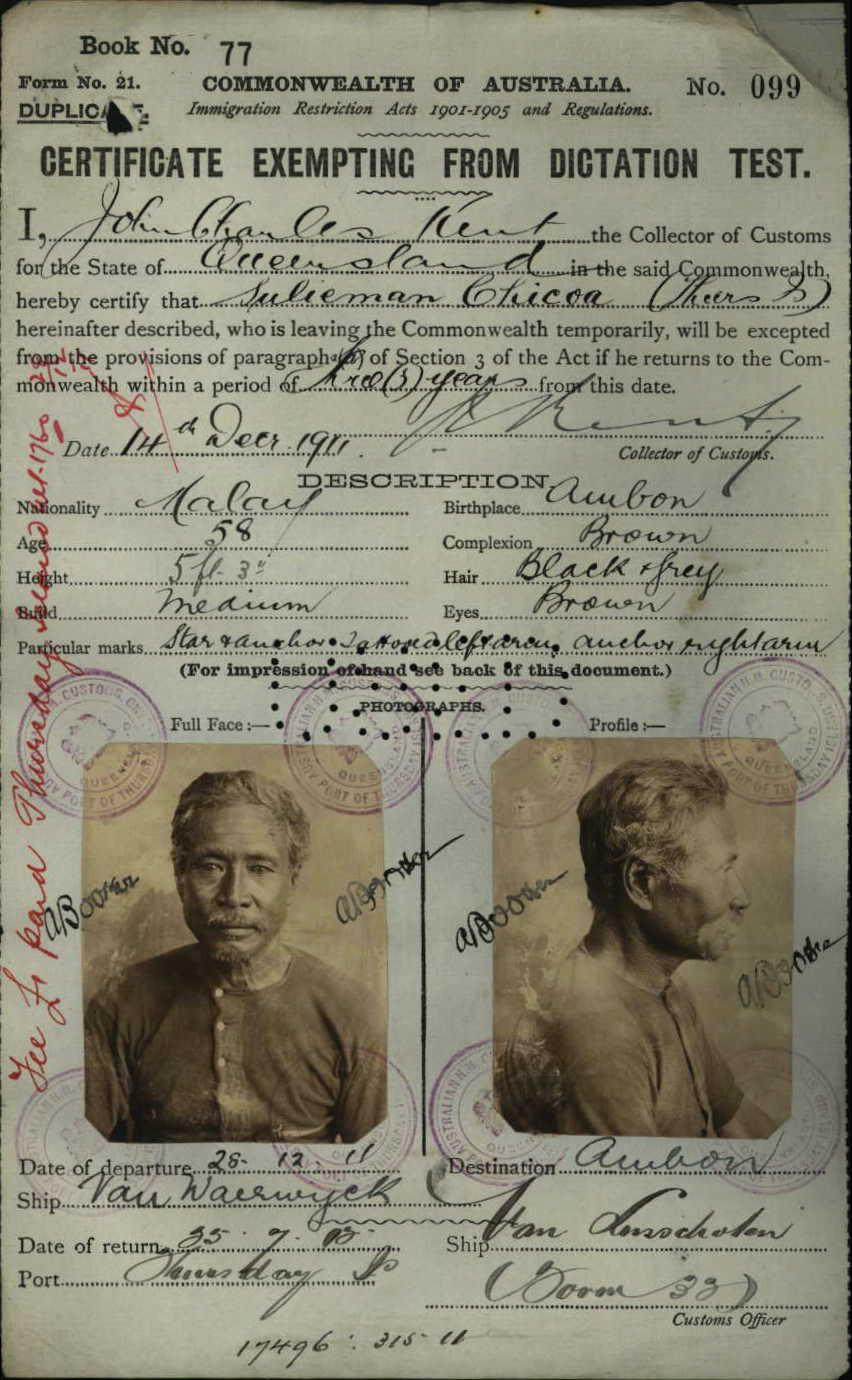 Book No. 77
Form No. 21. COMMONWEALTH OF AUSTRALIA. No. 099
DUPLICATE. Immigration Restriction Acts 1901-1905 and Regulations.
CERTIFICATE EXEMPTING FROM DICTATION TEST.
I, John Charles Kent the Collector of Customs
for the State of Queensland in the said Commonwealth,
hereby certify that Sulieman Chicoa (Thurs Is)
hereinafter described, who is leaving the Commonwealth temporarily, will be excepted
from the provisions of paragraph (a) of Section 3 of the Act if he returns to the Com-
monwealth within a period of three (3) years from this date.
Date 14th Decr 1911.
Collector of Customs.
DESCRIPTION
Nationality Malay Birthplace Ambon
Age 58 Complexion Brown
Height 5 ft. 3" Hair Black & Grey
Build Medium Eyes Brown
Particular marks Star & anchor tattooed left arm, anchor right arm
(For impression of hand see back of this document.)
PHOTOGRAPHS.
Full Face :— Profile :—
Fee £1 paid Thursday
Date of departure 28. 12. 11 Destination Ambon
Ship Van Waerwyck
Date of return 25. 7. 13 Ship Van Linschoten
Port Thursday Is (Form 33)
Customs Officer
17496. 315. 11